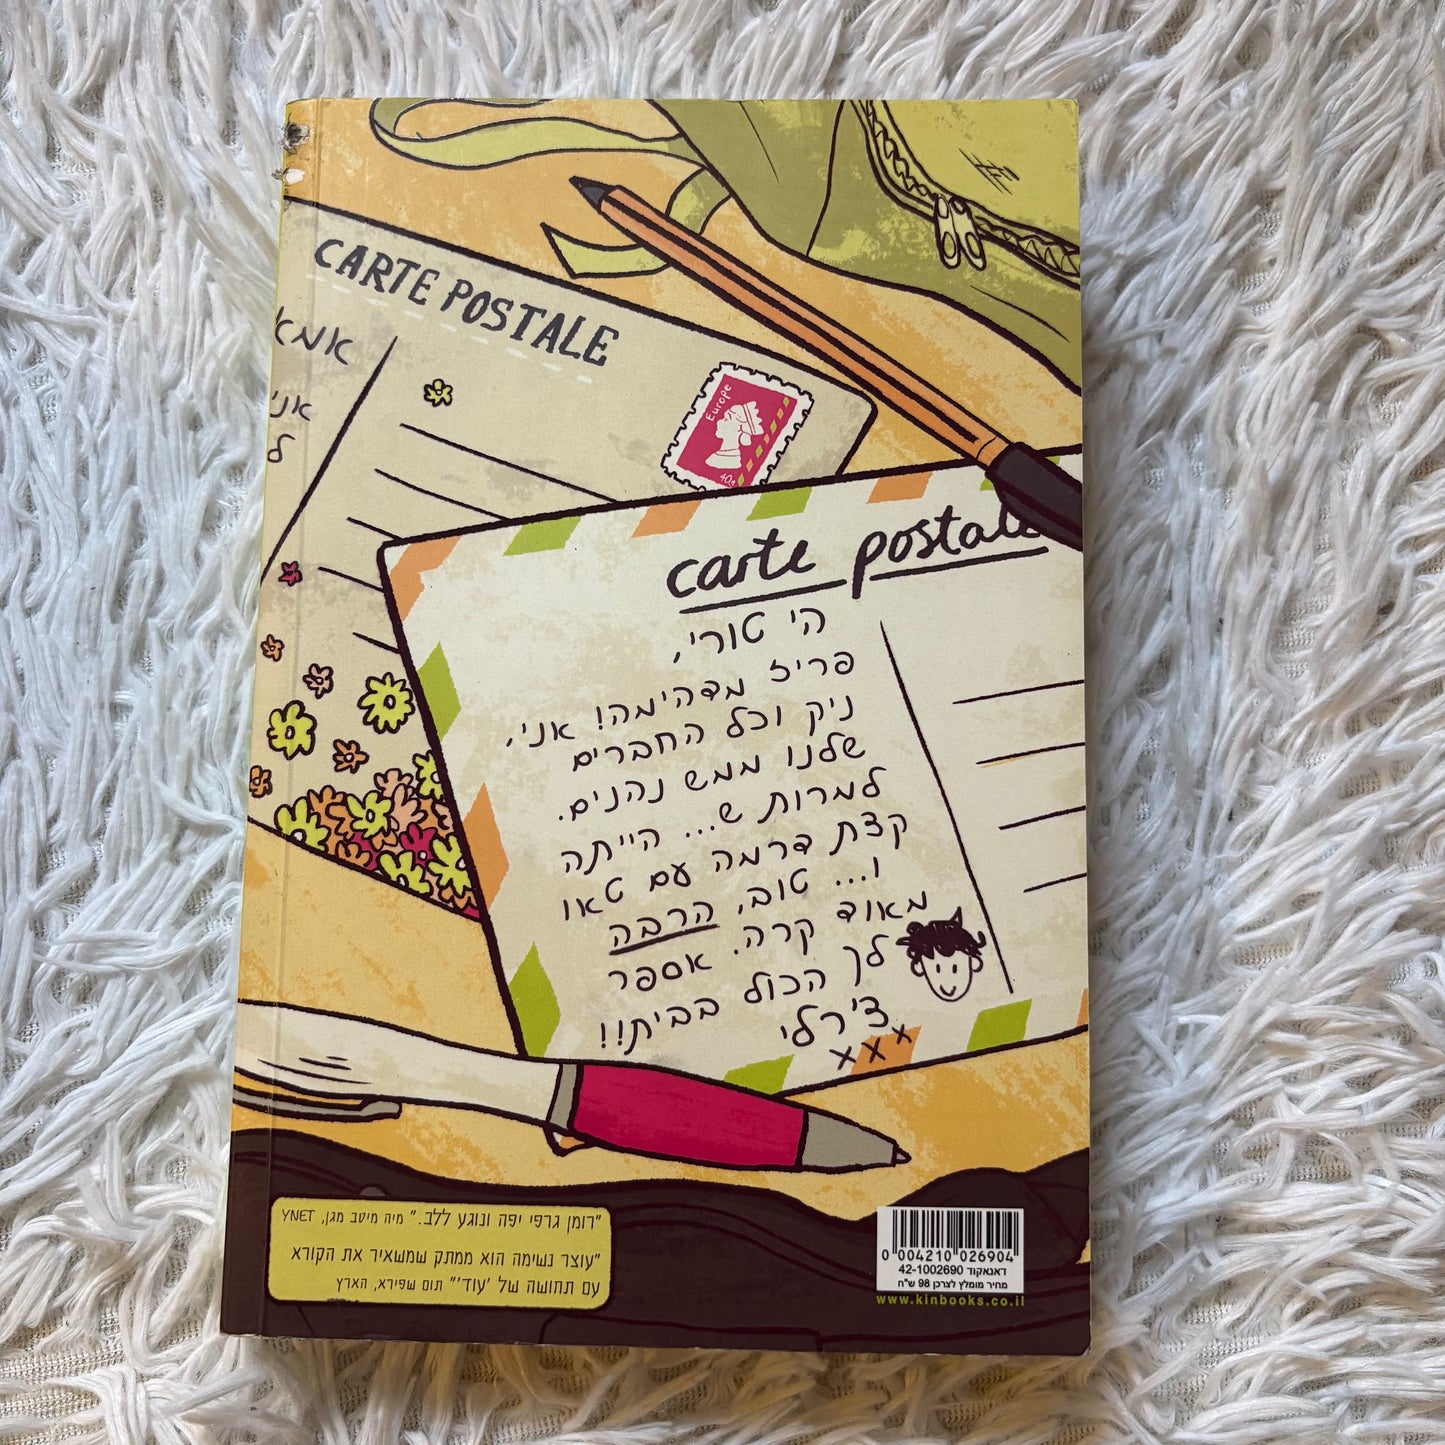 CARTE POSTALE
אמא
אני
ל
Europe
40g
carte postale
היי טורי,
פריז מדהימה! אני,
ניק וכל החברים
שלנו ממש נהנים.
למרות ש... הייתה
קצת דרמה עם טאו
ו... טוב, הרבה
מאוד קרה. אספר
לך הכול בבית!!
צ'רלי
xxx
"רומן גרפי יפה ונוגע ללב." מיה מיטב מגן, YNET
"עוצר נשימה הוא ממתק שמשאיר את הקורא
עם תחושה של 'עוד'" תום שפירא, הארץ
0 004210 026904
דאנאקוד 42-1002690
מחיר מומלץ לצרכן 98 ש"ח
www.kinbooks.co.il